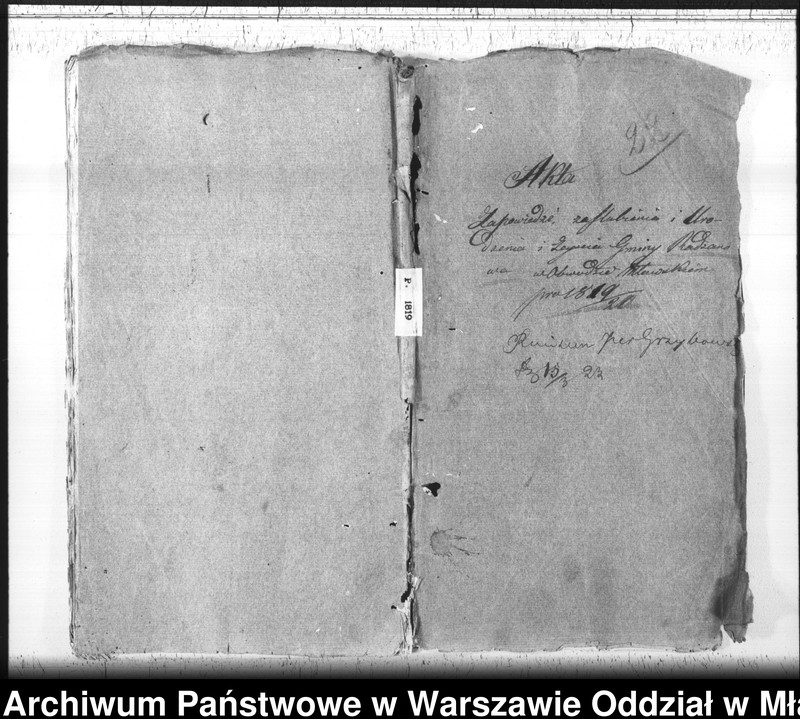 22
Akta
Zapowiedź. zaślubienia i Uro-
dzenia i Zeyścia Gminy Radzano
wa w Obwodzie Mławskim
pro 1819/20
P. 1819
15/3 22
Archiwum Państwowe w Warszawie Oddział w Mła